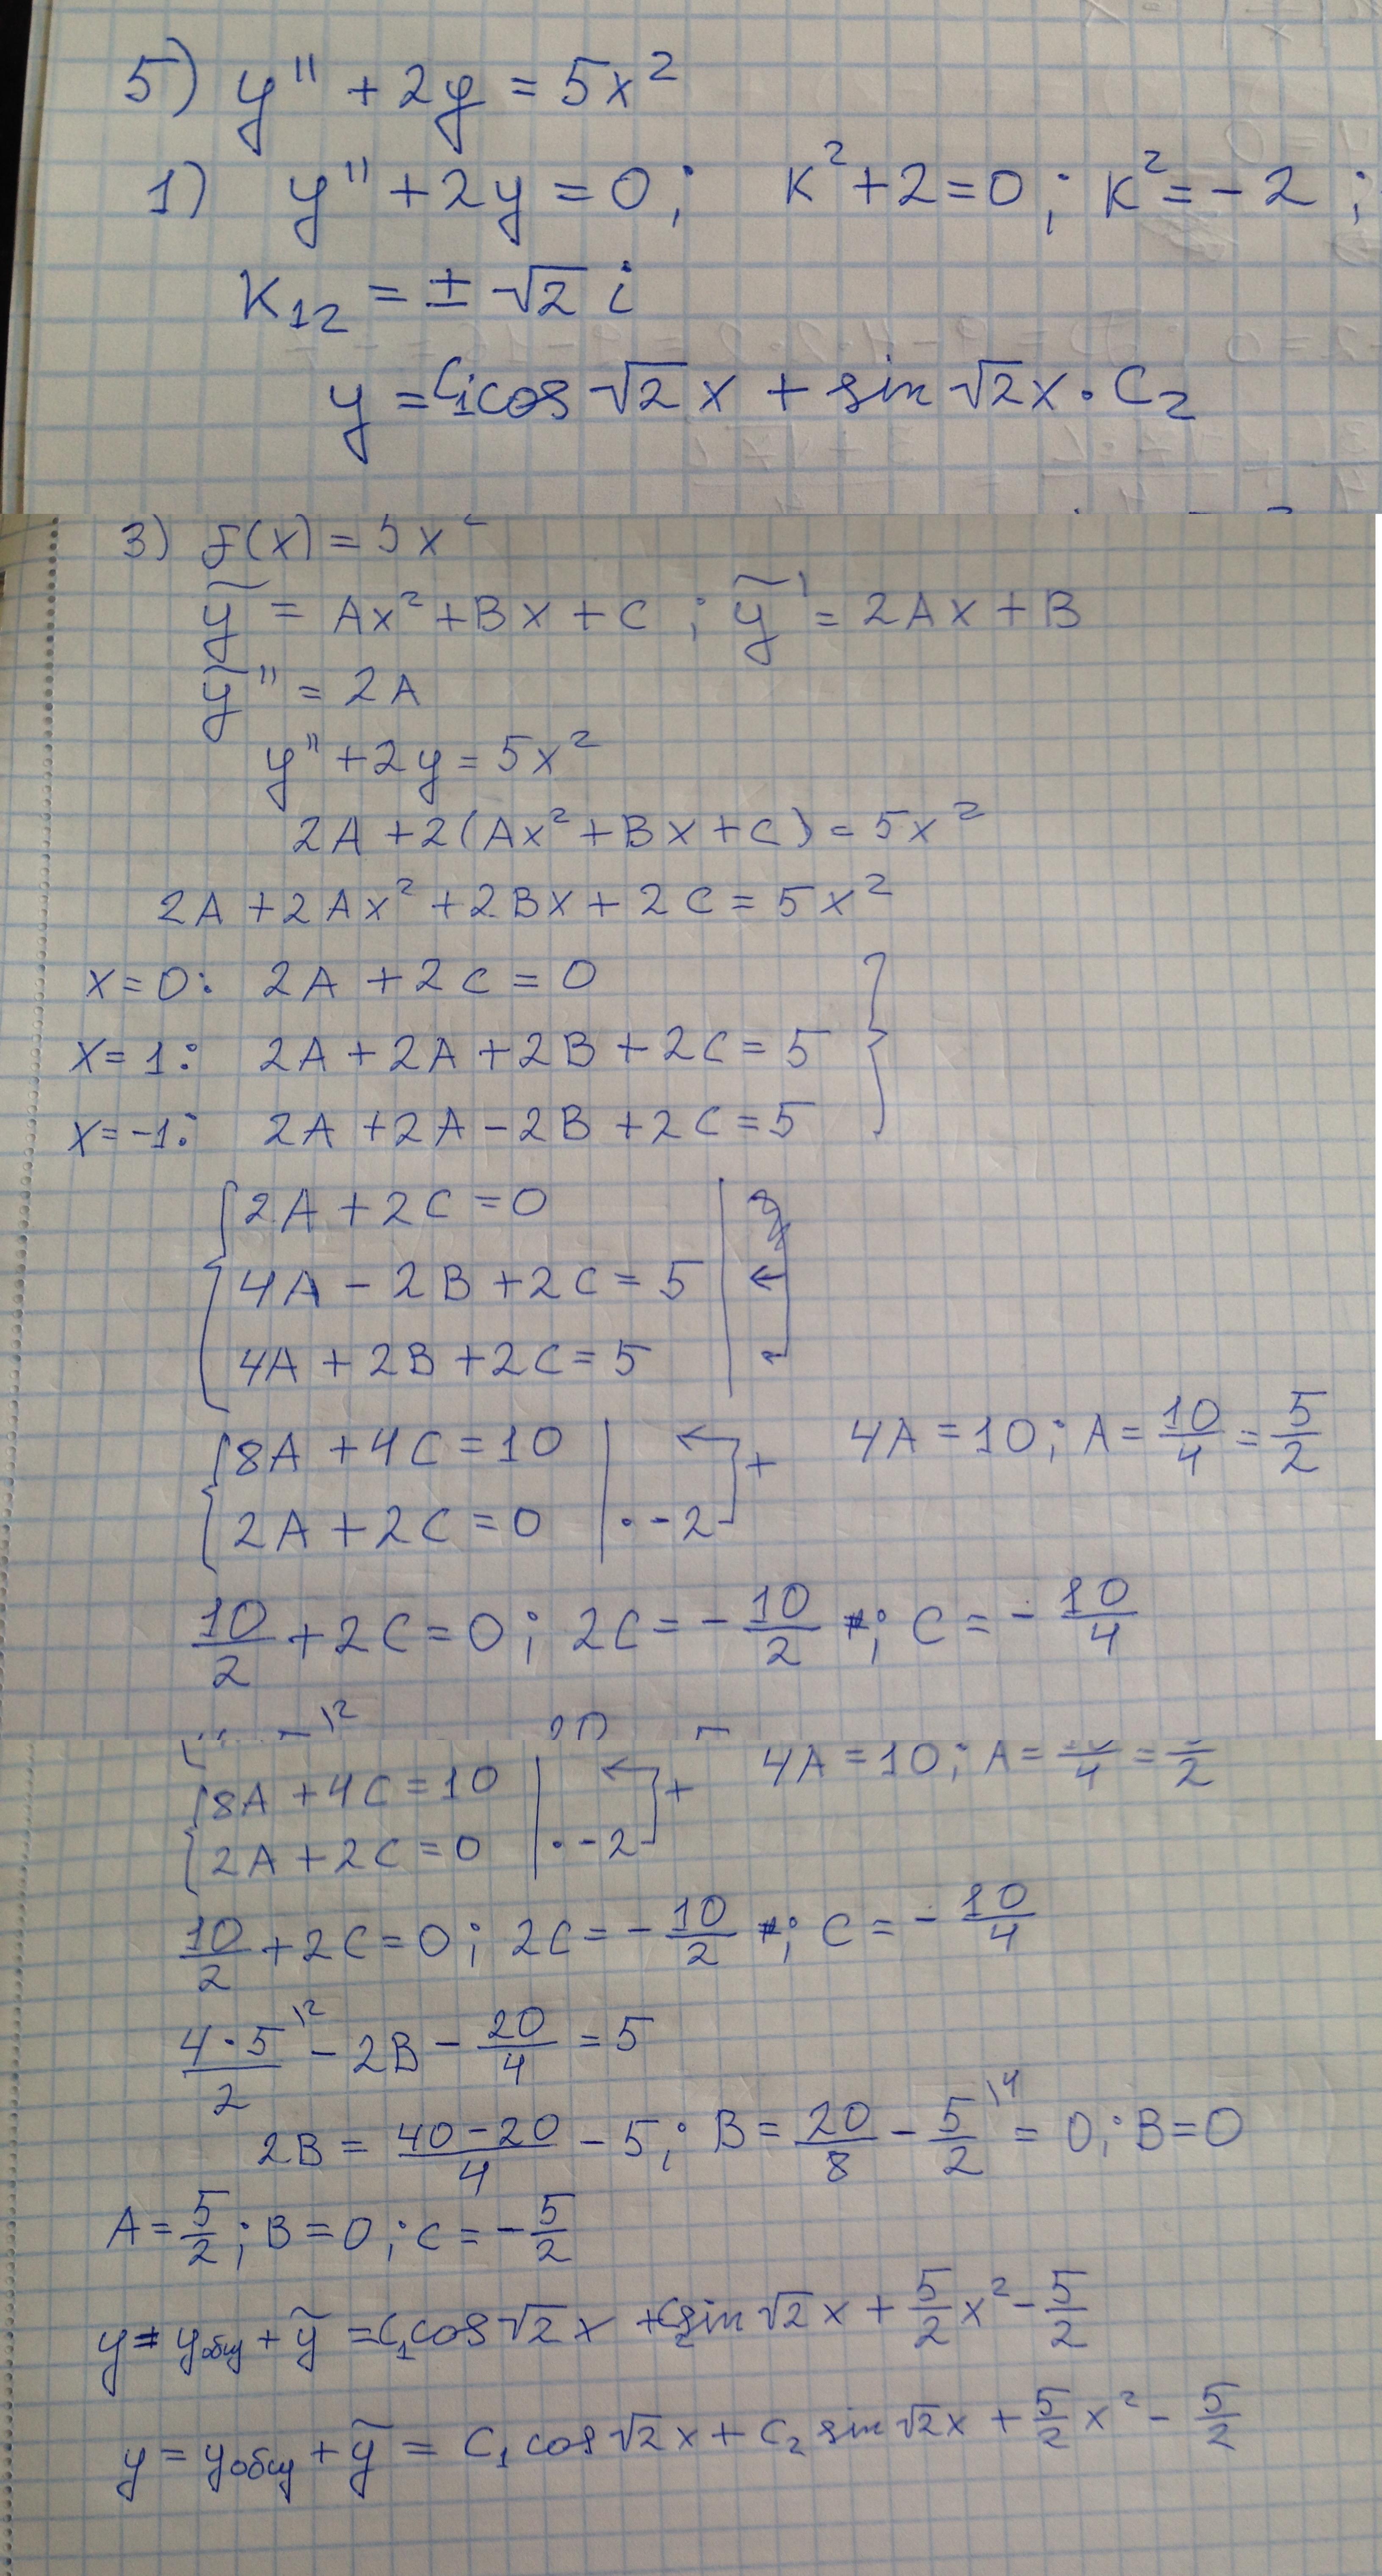 5) y'' + 2y = 5x²
1) y'' + 2y = 0; k² + 2 = 0; k² = -2;
k₁₂ = ± √2 i
y = C₁cos √2 x + sin √2 x · C₂
3) f(x) = 5x²
ỹ = Ax² + Bx + C; ỹ' = 2Ax + B
ỹ'' = 2A
y'' + 2y = 5x²
2A + 2(Ax² + Bx + C) = 5x²
2A + 2Ax² + 2Bx + 2C = 5x²
x = 0: 2A + 2C = 0
x = 1: 2A + 2A + 2B + 2C = 5
x = -1: 2A + 2A - 2B + 2C = 5
2A + 2C = 0
4A - 2B + 2C = 5
4A + 2B + 2C = 5
8A + 4C = 10 | + 4A = 10; A = 10/4 = 5/2
2A + 2C = 0 | · -2
10/2 + 2C = 0; 2C = -10/2; C = -10/4
8A + 4C = 10 | + 4A = 10; A = 10/4 = 5/2
2A + 2C = 0 | · -2
10/2 + 2C = 0; 2C = -10/2; C = -10/4
4·5/2 \2 - 2B - 20/4 = 5
2B = 40-20/4 - 5; B = 20/8 - 5/2 \4 = 0; B = 0
A = 5/2; B = 0; C = -5/2
y = yобщ + ỹ = C₁cos √2 x + C₂sin √2 x + 5/2 x² - 5/2
y = yобщ + ỹ = C₁ cos √2 x + C₂ sin √2 x + 5/2 x² - 5/2